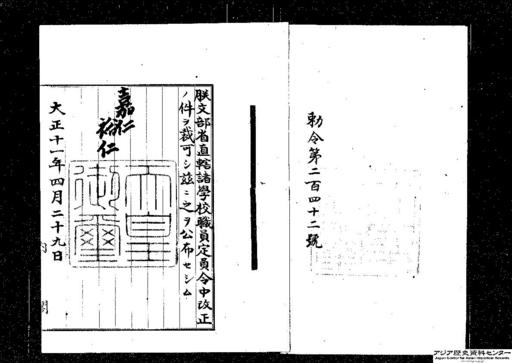 勅令第二百四十二號
朕文部省直轄諸學校職員定員令中改正
ノ件ヲ裁可シ茲ニ之ヲ公布セシム
嘉仁
裕仁
天皇御璽
大正十一年四月二十九日
内閣
アジア歴史資料センター
Japan Center for Asian Historical Records